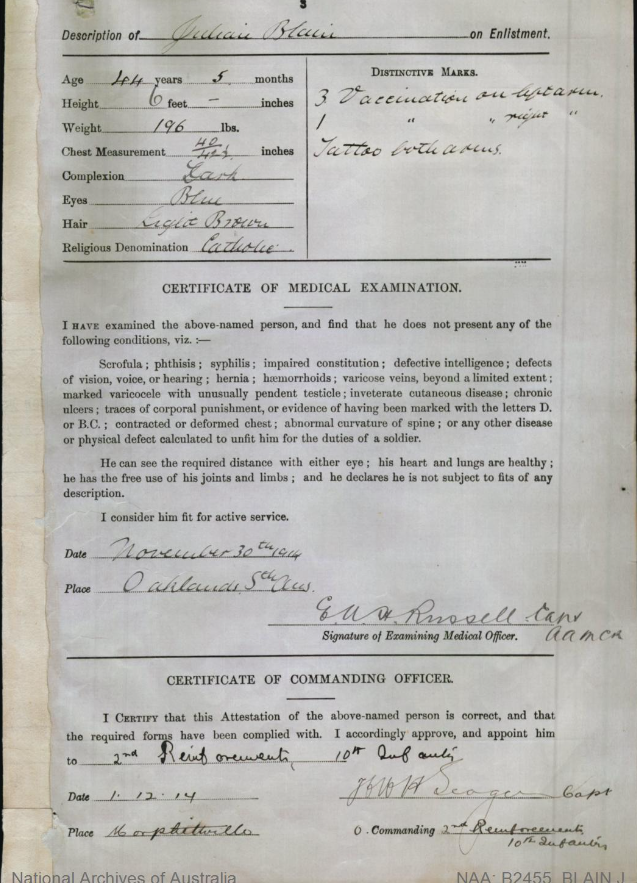 3
Description of Julian Blain on Enlistment.
Age 44 years 5 months
Height 6 feet - inches
Weight 196 lbs.
Chest Measurement 40/42½ inches
Complexion Dark
Eyes Blue
Hair Light Brown
Religious Denomination Catholic
DISTINCTIVE MARKS.
3 Vaccination on left arm.
1 " " right "
Tattoo both arms.
CERTIFICATE OF MEDICAL EXAMINATION.
I HAVE examined the above-named person, and find that he does not present any of the
following conditions, viz. :—
Scrofula ; phthisis ; syphilis ; impaired constitution ; defective intelligence ; defects
of vision, voice, or hearing ; hernia ; hæmorrhoids ; varicose veins, beyond a limited extent ;
marked varicocele with unusually pendent testicle ; inveterate cutaneous disease ; chronic
ulcers ; traces of corporal punishment, or evidence of having been marked with the letters D.
or B.C. ; contracted or deformed chest ; abnormal curvature of spine ; or any other disease
or physical defect calculated to unfit him for the duties of a soldier.
He can see the required distance with either eye ; his heart and lungs are healthy ;
he has the free use of his joints and limbs ; and he declares he is not subject to fits of any
description.
I consider him fit for active service.
Date November 30th 1914
Place Oaklands, Sth Aus.
E.W.H. Russell Capt
Signature of Examining Medical Officer. AAMC
CERTIFICATE OF COMMANDING OFFICER.
I CERTIFY that this Attestation of the above-named person is correct, and that
the required forms have been complied with. I accordingly approve, and appoint him
to 2nd Reinforcements, 10th Infantry
Date 1.12.14 Seager Capt
Place Morphettville O. Commanding 2nd Reinforcements
10th Infantry
National Archives of Australia NAA: B2455, BLAIN J